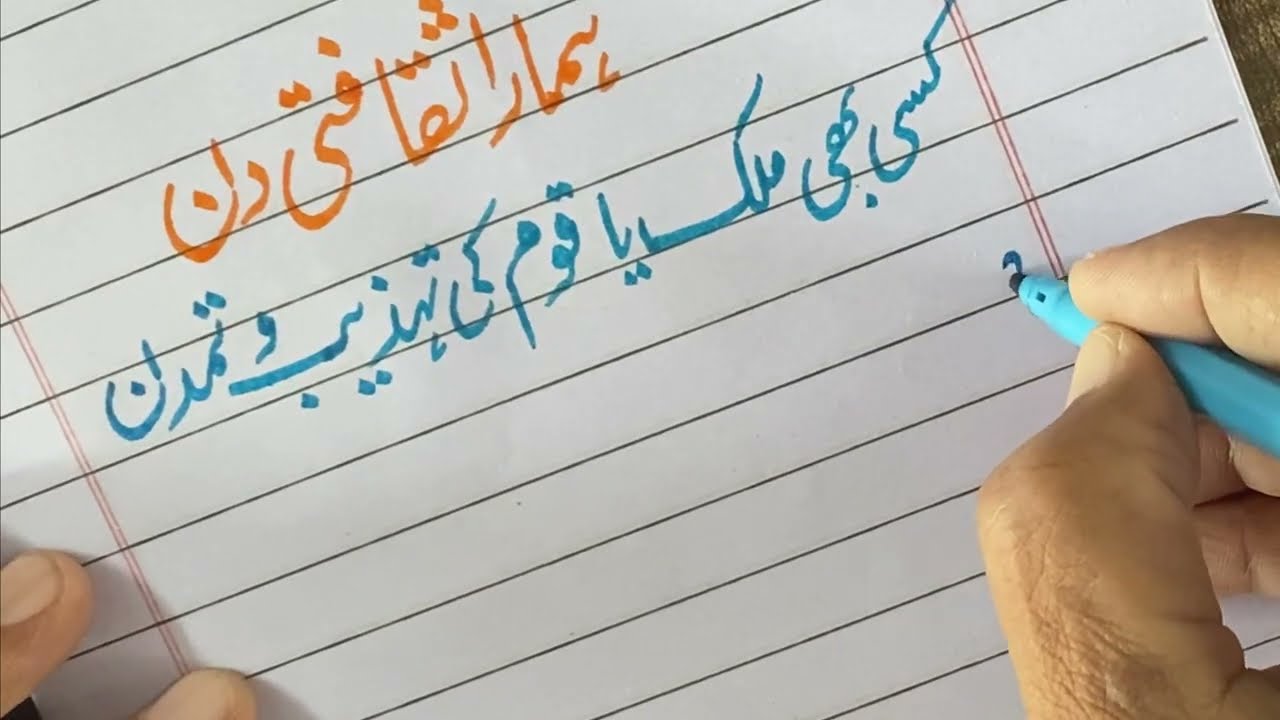 ہمارا ثقافتی دن
کسی بھی ملک یا قوم کی تہذیب و تمدن